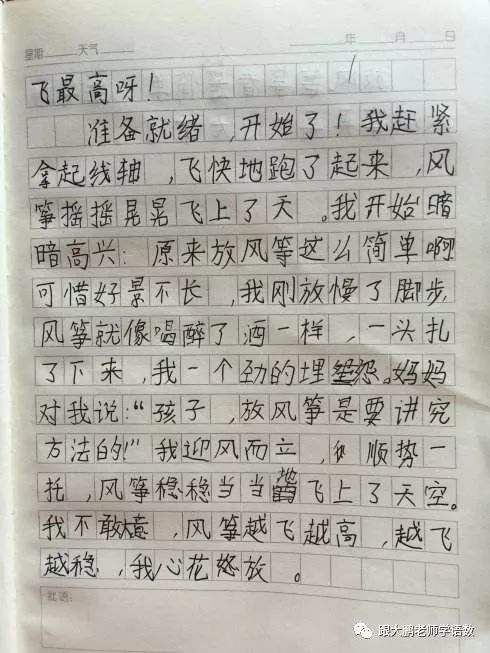 星期 天气 年 月 日
飞最高呀！
准备就绪，开始了！我赶紧
拿起线轴，飞快地跑了起来，风
筝摇摇晃晃飞上了天。我开始暗
暗高兴：原来放风筝这么简单啊
可惜好景不长，我刚放慢了脚步，
风筝就像喝醉了酒一样，一头扎
了下来，我一个劲的埋怨。妈妈
对我说：“孩子，放风筝是要讲究
方法的！”我迎风而立，顺势一
托，风筝稳稳当当地飞上了天空。
我不敢大意，风筝越飞越高，越飞
越稳，我心花怒放。
批语：
跟大鹏老师学语数